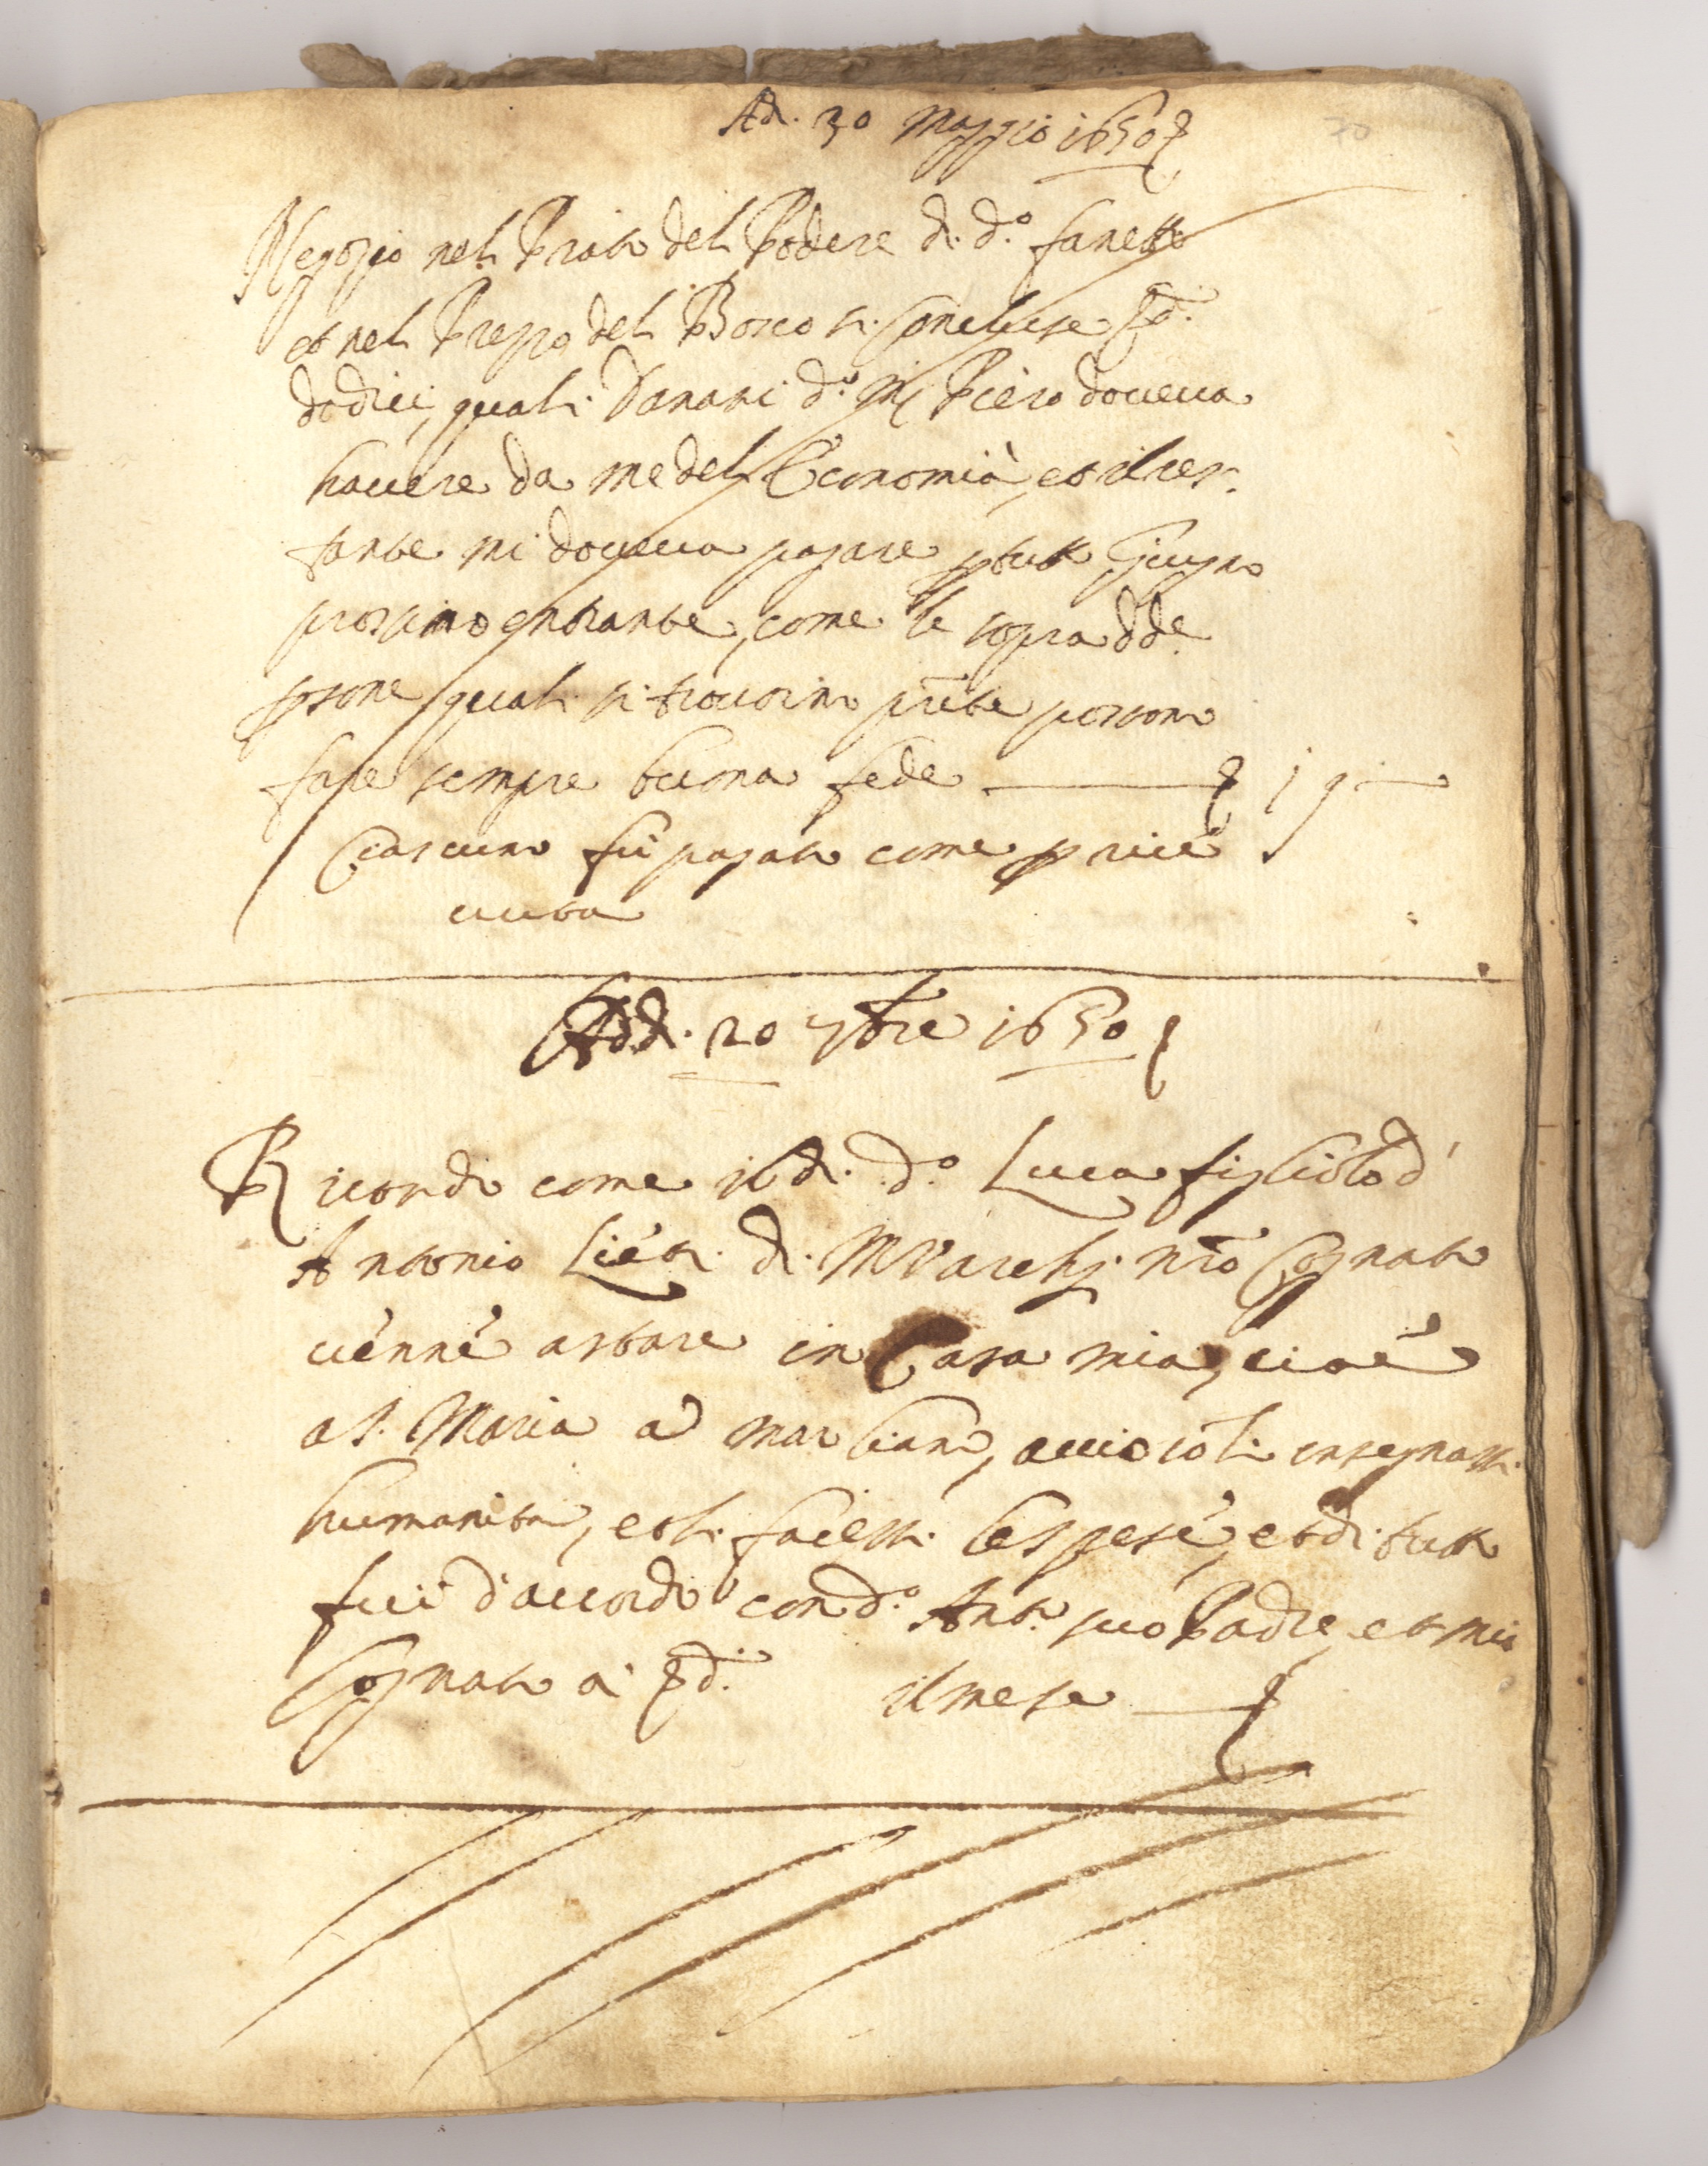 Adi. 30 Maggio 1650
70
Negozio nel Prato del Podere di d.o
et nel Prezzo del Bosco si Concluse
dodici, quali Danari d.o Piero doveva
havere da me del Economia, et il res-
tante mi doveva pagare p tutto Giugno
prossimo entrante, come le sopra dde
psone quali si trovorno pñte possono
fare sempre buona fede 19
Ciascuno fu pagato come p rice
vuta
Adi. 20 7bre 1650
Ricordo come il di. d.o Luca figliolo d'
Antonio di. MVarchi nrõ Cognato
venne a stare in Casa mia, cioè
a S. Maria a Marciano, acciò io li insegnassi
humanita, et li facessi le spese, et di tutto
fui d'accordo con d.o Ant.o suo Padre, et mio
Cognato a il mese